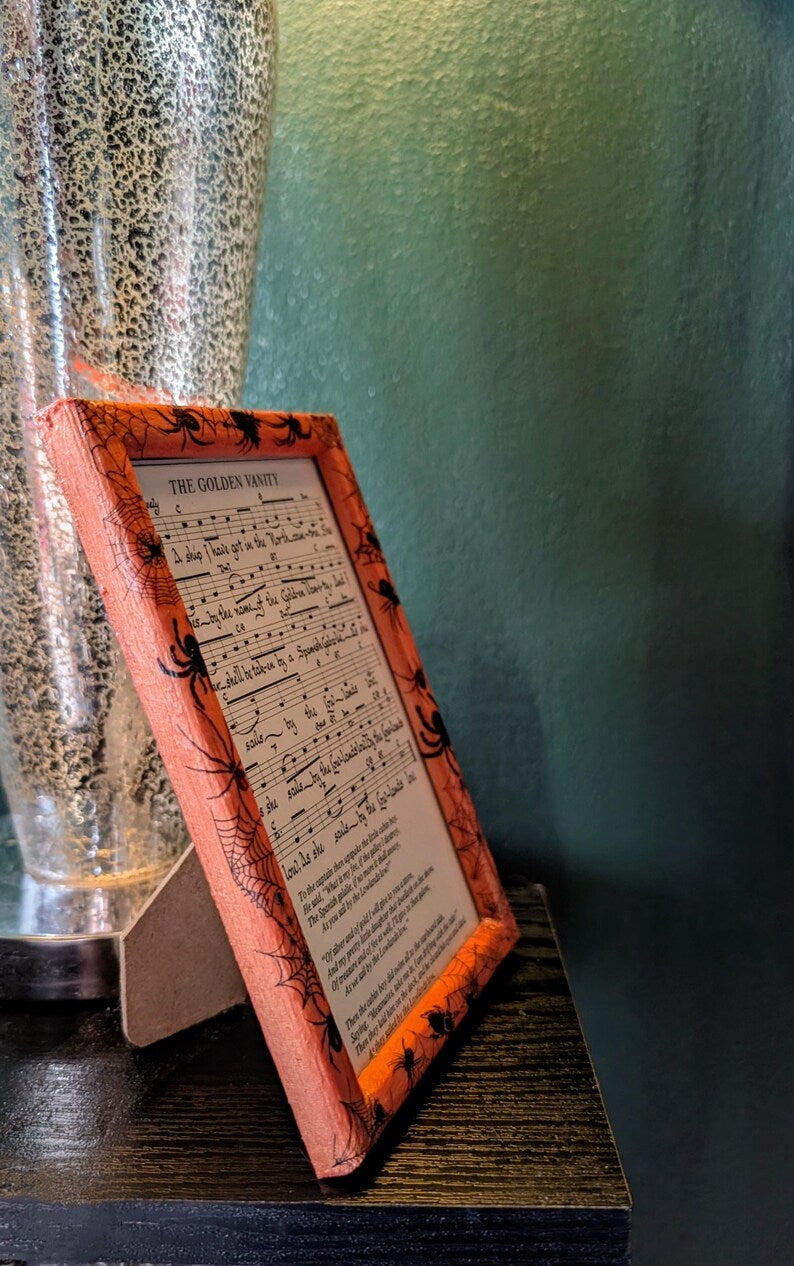 THE GOLDEN VANITY
C G Dm
A ship I have got in the North coun-trie, She
by the name of the Gold-en Van-i-ty, And I
she'll be tak-en by a Spanish Gal-a-lie As she
sails by the Low-lands low
she sails by the Low-lands low, By the Low-lands
low, As she sails by the Low-lands low
To the captain then upspake the little cabin boy,
He said, "What is my fee, if the galley I destroy,
The Spanish galalie, if no more it shall annoy,
As you sail by the Lowlands low?
"Of silver and of gold I will give to you a store,
And my pretty little daughter that dwelleth on the shore,
Of treasure and of fee as well, I'll give to thee galore,
As we sail by the Lowlands low."
Then the cabin boy did swim all to the larboard side,
Saying, "Messmates, take me in, I am drifting with the
Then they laid him on the deck, and he
As they sailed by the Lowlands